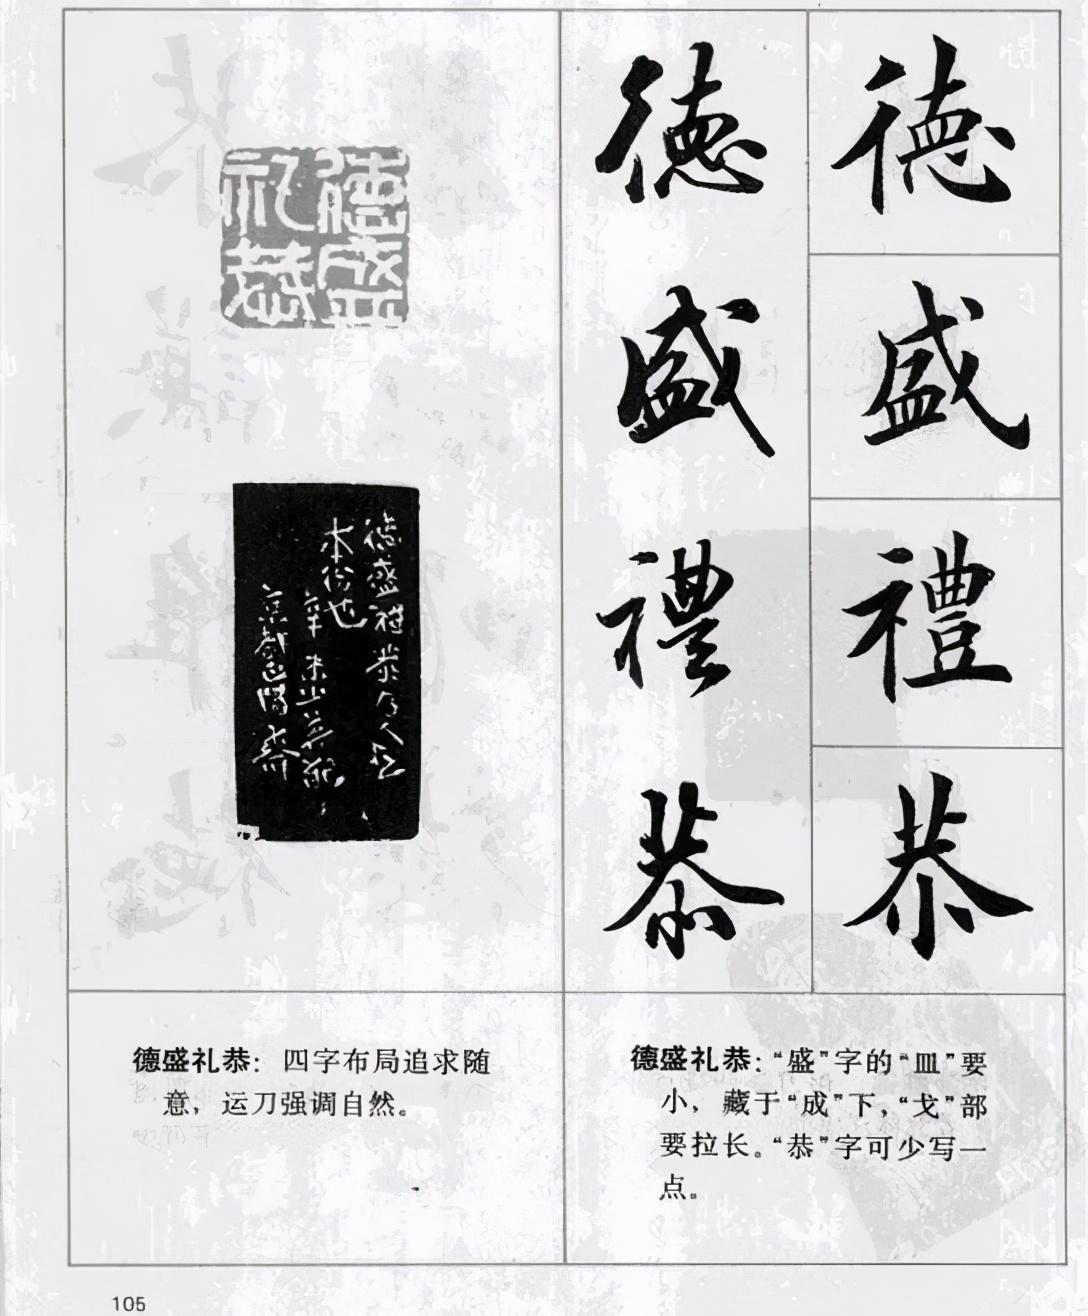 德盛禮恭
德盛禮恭
德盛
礼恭
德盛禮恭乃人之
本
辛未
德盛礼恭：“盛”字的“皿”要
小，藏于“成”下，“戈”部
要拉长。“恭”字可少写一
点。
德盛礼恭：四字布局追求随
意，运刀强调自然。
105